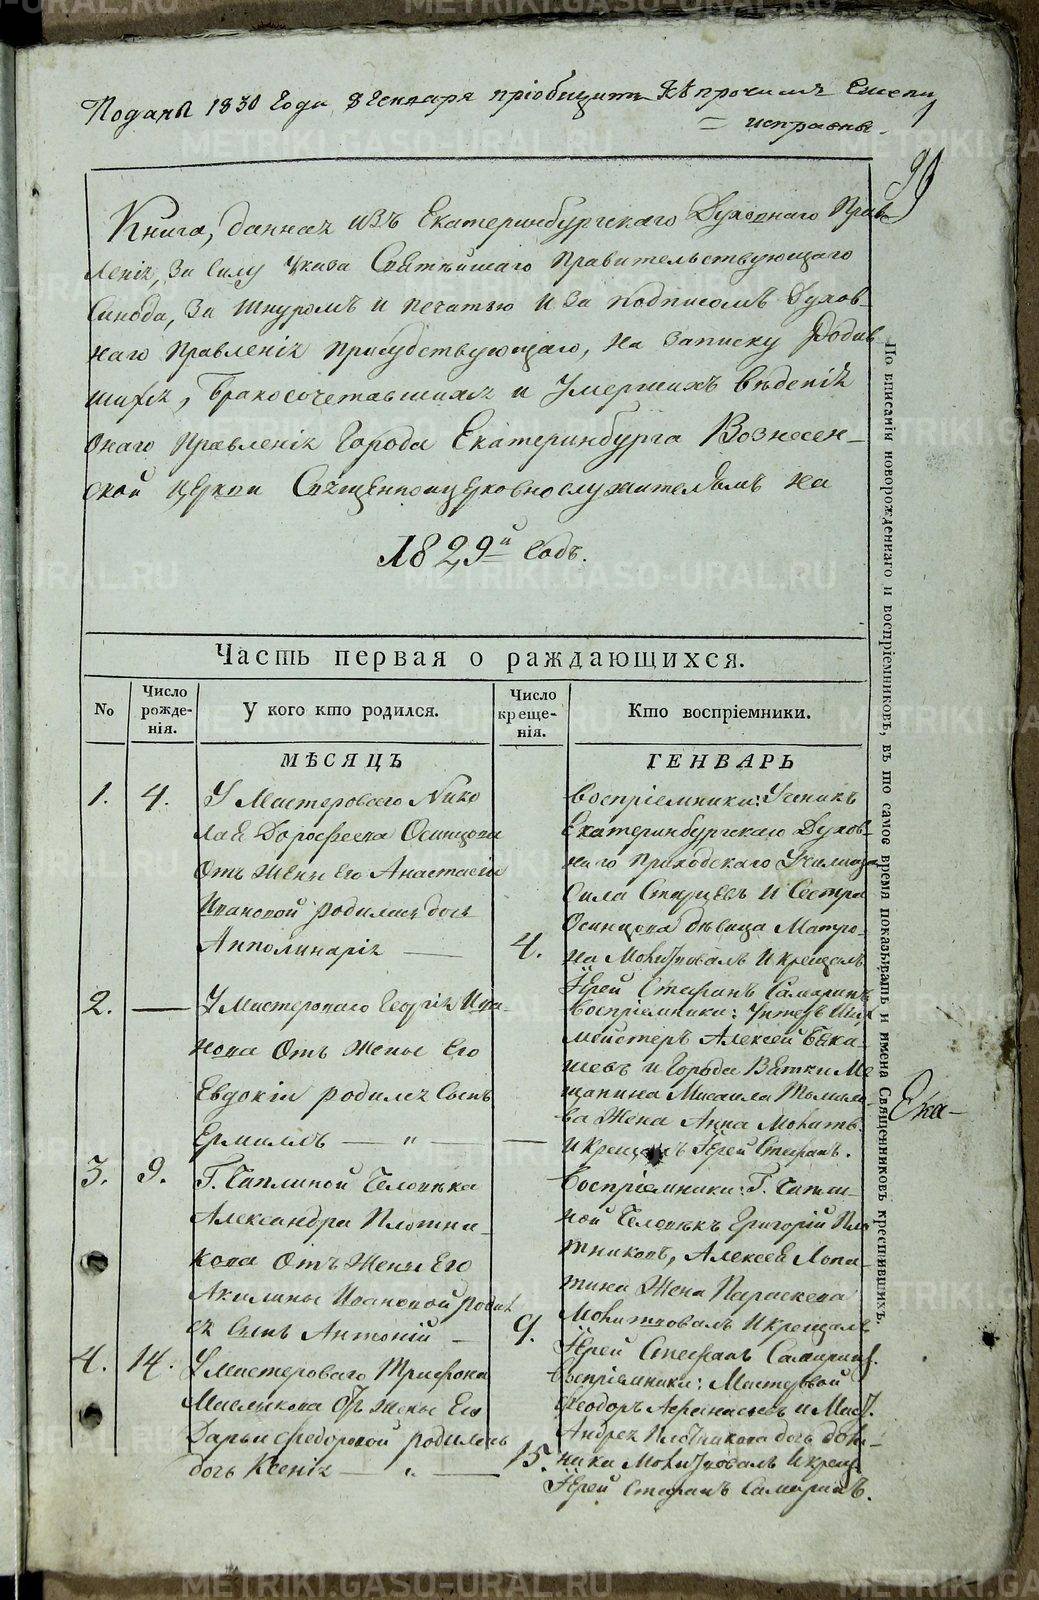 Поданъ 1830 Года Генваря пріобщить къ прочимъ
= исправна.
Книга, данная изъ Екатеринбургскаго Духовнаго Прав-
ленія, въ силу Указа Святѣйшаго Правительствующаго
Синода, за шнуромъ и печатью и за подписомъ Духов-
наго Правленія присудствующаго, на записку Родив
шихся, бракосочетавшихся и Умершихъ вѣденія
онаго Правленія Города Екатеринбурга Вознесен-
ской церкви Священноицерковнослужителямъ на
1829й Годъ.
Часть первая о раждающихся.
No
Число рожде-нія.
У кого кто родился.
Число креще-нія.
Кто воспріемники.
МѢСЯЦЪ
ГЕНВАРЬ
1. 4. У Мастероваго Нико
лая Дорофеева Осинцова
Отъ Жены Его Анастасіи
Ивановой родилась дочь
Апполинарія
4.
воспріемники: Ученикъ
Екатеринбургскаго Духов-
наго Приходскаго Училища
Сила Старцевъ и Сестра
Осинцова дѣвица Матро-
на Молитвовалъ И крещалъ
Іерей Стефанъ Самаринъ
2. — У Мастероваго Георгія Ива-
нова Отъ Жены Его
Евдокіи родился Сынъ
Ермилъ — " —
—
воспріемники: Унтеръ Ших
мейстеръ Алексей
и Города Вятки Ме
щанина Мисаила
ва Жена Анна Молитв.
И крещалъ Іерей Стефанъ.
3. 9. Г. Чаплиной Человѣка
Александра Плотни-
кова Отъ Жены Его
Акилины Ивановой роди
ся Сынъ Антоній —
9.
воспріемники: Г. Чапли-
ной Человѣкъ Григорій Пло
тниковъ, Алексея Лопа-
тина Жена Параскева
Молитвовалъ И крещалъ
Іерей Стефанъ Самаринъ.
4. 14. У Мастероваго Трифона
Масликова Отъ Жены Его
Дарьи Федоровой родилась
дочь Ксенія — " —
15.
воспріемники: Мастеровой
Феодоръ Афанасьевъ и Маст.
Андрея Плотникова дочь Дом-
ника Молитвовалъ И крещ.
Іерей Стефанъ Самаринъ.
По вписаніи новорожденнаго и воспріемниковъ, въ то самое время показывать и имена Священниковъ крестившихъ.
Ека-
METRIKI.GASO-URAL.RU